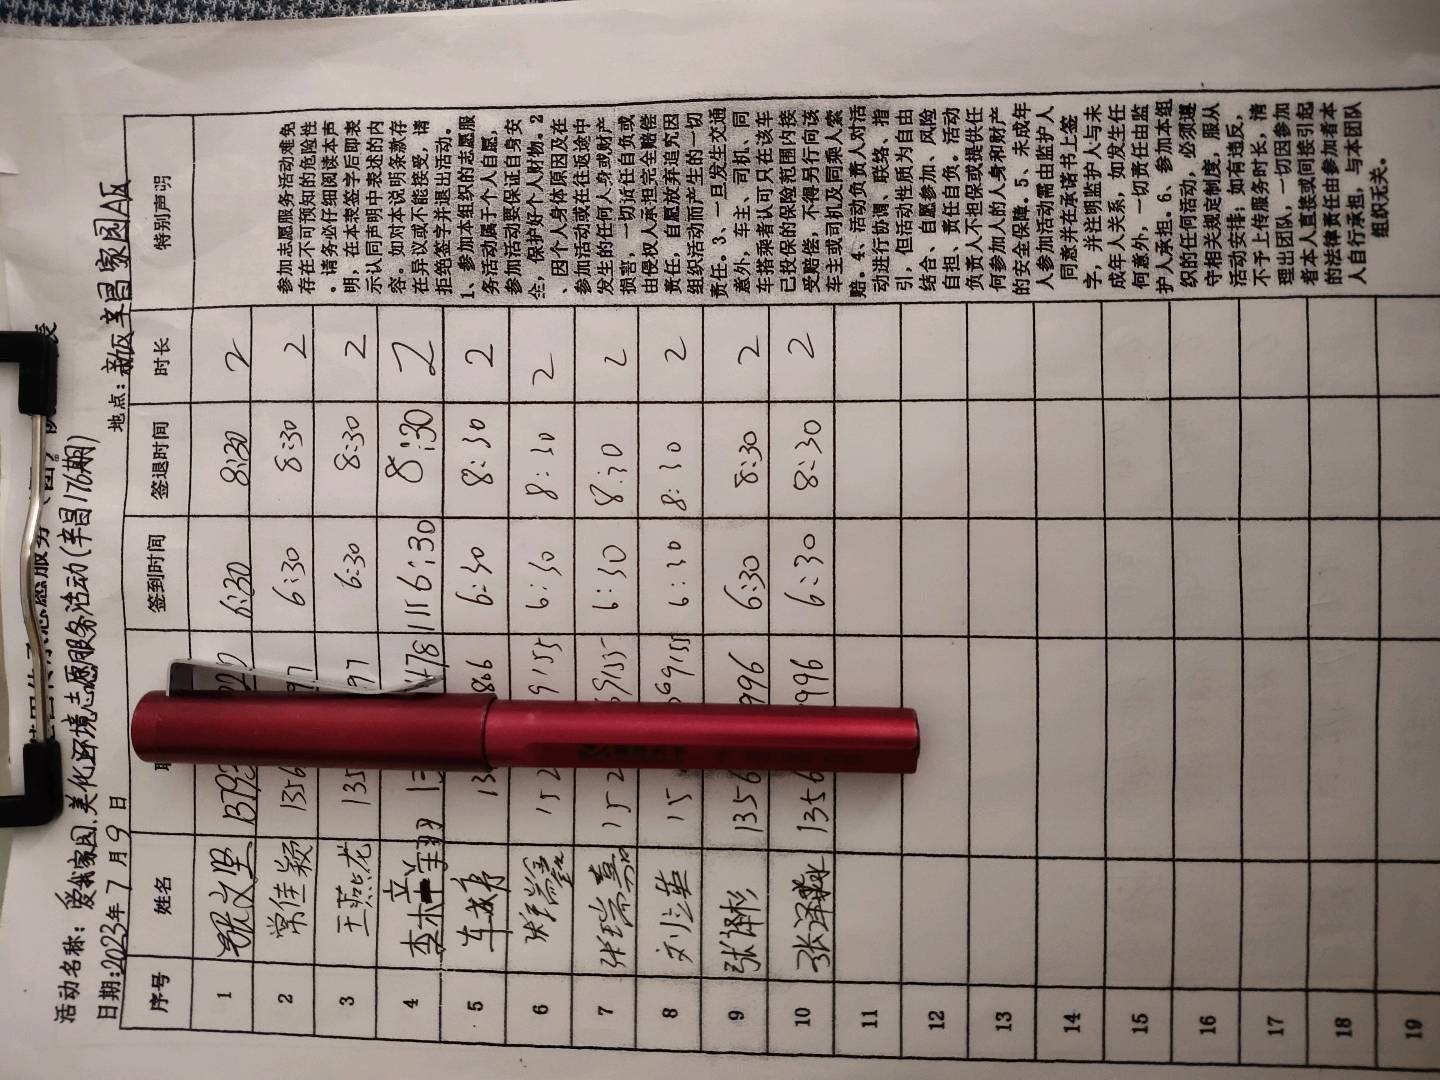 活动名称：爱我家园,美化环境志愿服务活动(辛昌176期)
日期:2023年7月9日 地点：新区辛昌家园A区
序号 姓名 签到时间 签退时间 时长 特别声明
1 张文坚 6:30 8:30 2
2 常佳颖 1356 97 6:30 8:30 2
3 王燕龙 135 97 6:30 8:30 2
4 478111 6:30 8:30 2
5 13 866 6:30 8:30 2
6 152 9155 6:30 8:30 2
7 张瑞嘉 152 69155 6:30 8:30 2
8 刘立英 15 69155 6:30 8:30 2
9 张泽彬 1356 996 6:30 8:30 2
10 1356 996 6:30 8:30 2
11
12
13
14
15
16
17
18
19
参加志愿服务活动难免
存在不可预知的危险性
。请务必仔细阅读本声
明，在本表签字后即表
示认同声明中表述的内
容。如对本说明条款存
在异议或不能接受，请
拒绝签字并退出活动。
1、参加本组织的志愿服
务活动属于个人自愿，
参加活动要保证自身安
全，保护好个人财物。2
、因个人身体原因及在
参加活动或在往返途中
发生的任何人身或财产
损害，一切近任自负或
由侵权人承担完全赔偿
责任，自愿放弃追究因
组织活动而产生的一切
责任。3、一旦发生交通
意外，车主、司机、同
车搭乘者认可只在该车
已投保的保险范围内接
受赔偿，不得另行向该
车主或司机及同乘人索
赔。4、活动负责人对活
动进行协调、联络、指
引，但活动性质为自由
结合、自愿参加、风险
自担、责任自负。活动
负责人不担保或提供任
何参加人的人身和财产
的安全保障。5、未成年
人参加活动需由监护人
同意并在承诺书上签
字，并注明监护人与未
成年人关系，如发生任
何意外，一切责任由监
护人承担。6、参加本组
织的任何活动，必须遵
守相关规定制度，服从
活动安排；如有违反，
不予上传服务时长，清
理出团队，一切因参加
者本人直接或间接引起
的法律责任由参加者本
人自行承担，与本团队
组织无关。